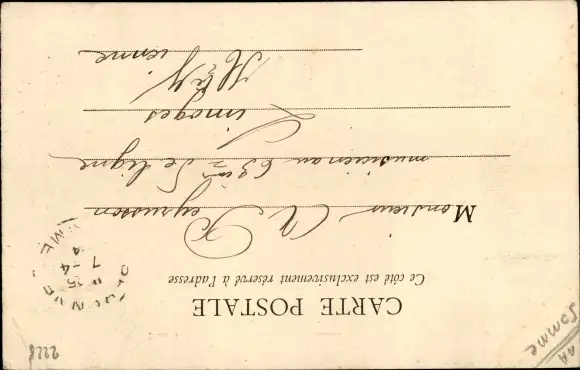 CARTE POSTALE
Ce côté est exclusivement réservé à l'adresse
Monsieur A. Peyrusson
musicien au 63eme de ligne
Limoges
Hte Vienne
7 15
4 4
ME
2228
Somme